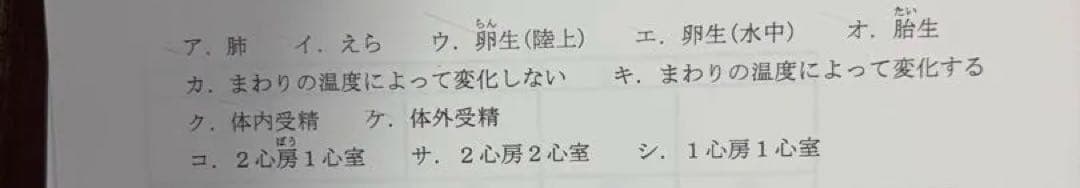 ア．肺　イ．えら　ウ．卵生(陸上)　エ．卵生(水中)　オ．胎生
カ．まわりの温度によって変化しない　キ．まわりの温度によって変化する
ク．体内受精　ケ．体外受精
コ．２心房１心室　サ．２心房２心室　シ．１心房１心室